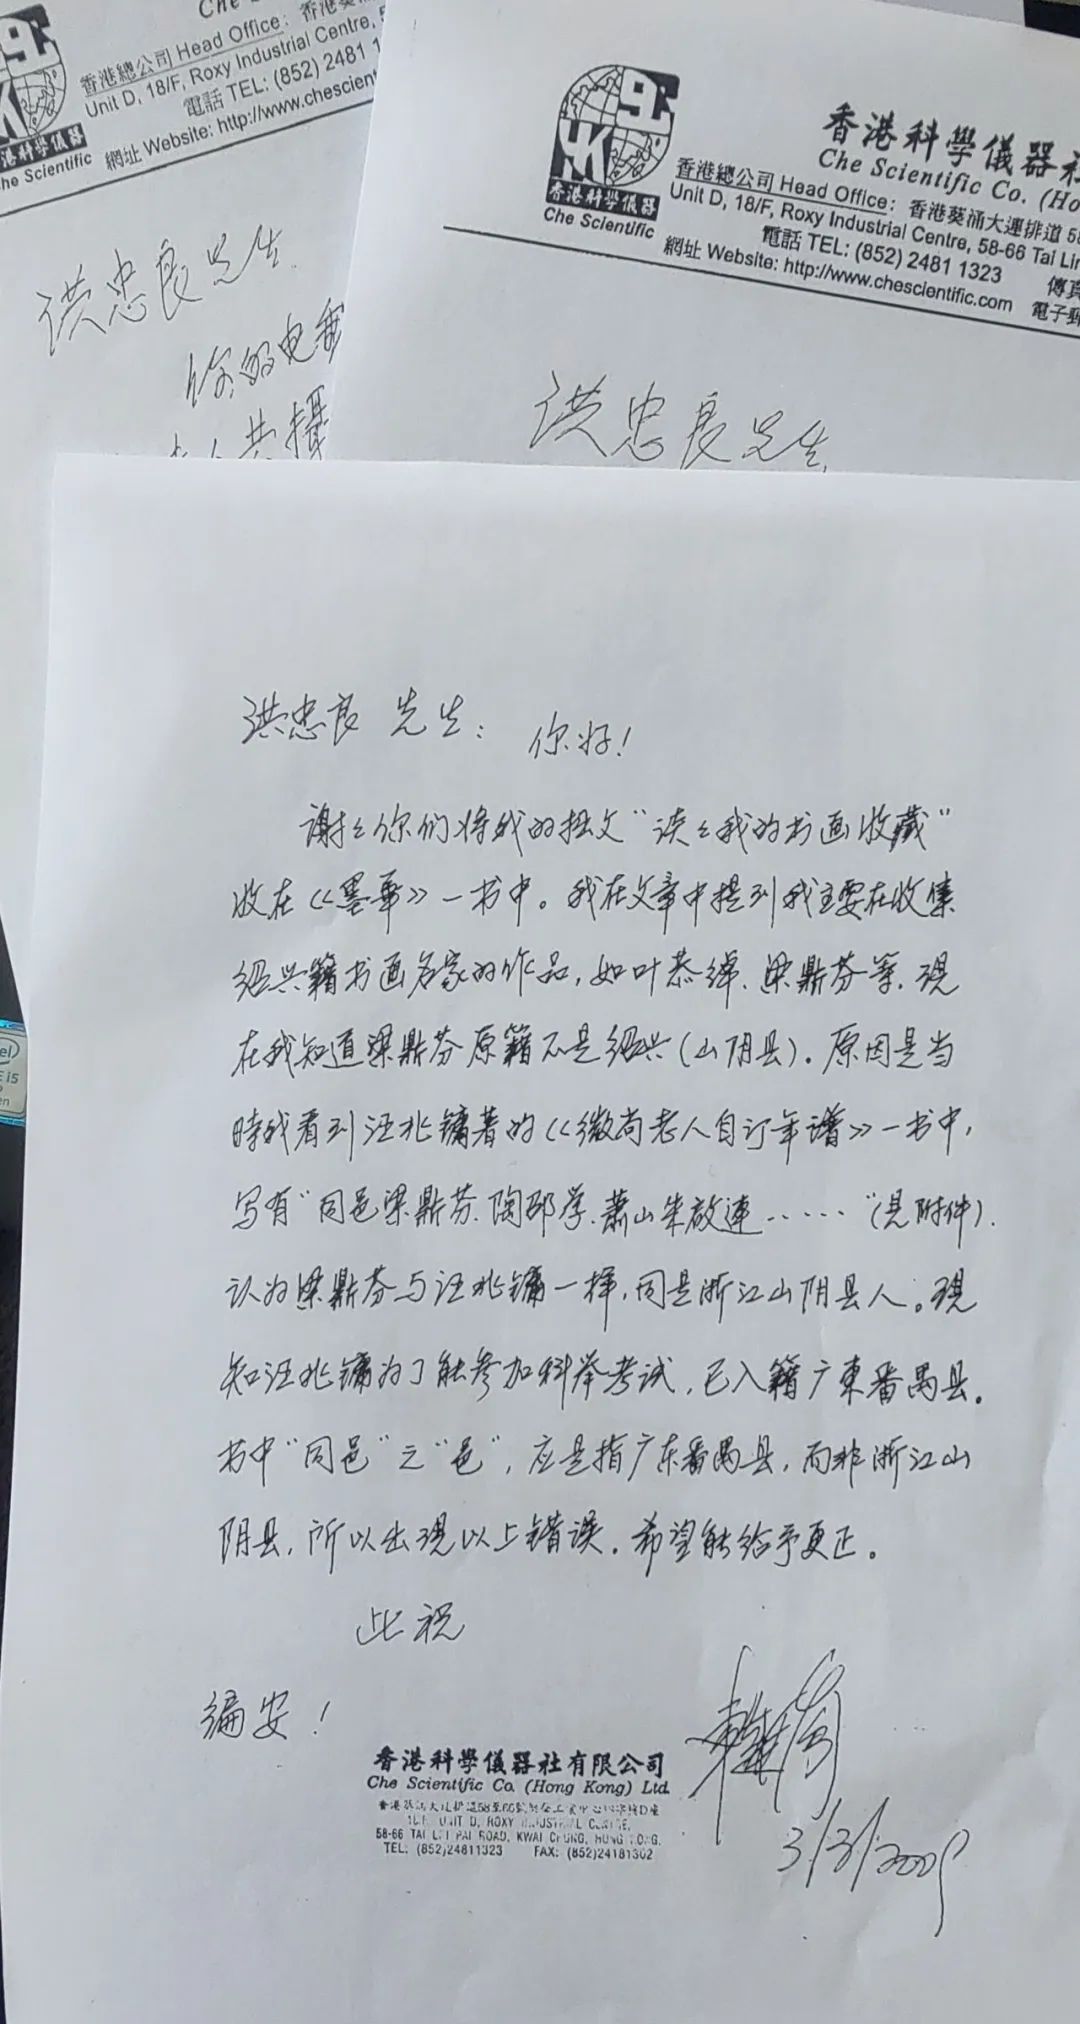 Che
香港總公司 Head Office: 香港葵
Unit D, 18/F, Roxy Industrial Centre, 5
電話 TEL: (852) 2481 1
網址 Website: http://www.chescient
HK
港科學儀器
he Scientific
洪忠良先生
你的电
香港科學儀器社
Che Scientific Co. (Ho
HK
香港科學儀器
Che Scientific
香港總公司 Head Office: 香港葵涌大連排道 58
Unit D, 18/F, Roxy Industrial Centre, 58-66 Tai Lin
電話 TEL: (852) 2481 1323
傳真
網址 Website: http://www.chescientific.com
電子郵
洪忠良先生
洪忠良 先生: 你好!
谢々你们将我的拙文“谈々我的书画收藏”
收在《墨華》一书中。我在文章中提到我主要在收集
绍兴籍书画名家的作品,如叶恭绰、梁鼎芬等,现
在我知道梁鼎芬原籍不是绍兴(山阴县)。原因是当
時我看到汪兆镛著的《微尚老人自订年譜》一书中,
写有“同邑梁鼎芬、陶邵学、萧山朱啟連......”(見附件).
认为梁鼎芬与汪兆镛一样,同是浙江山阴县人。现
知汪兆镛为了能参加科举考试,已入籍广東番禺县。
书中“同邑”之“邑”,应是指广东番禺县,而非浙江山
阴县,所以出现以上错误。希望能给予更正。
此祝
编安!
香港科學儀器社有限公司
Che Scientific Co. (Hong Kong) Ltd.
58-66 TAI LIN PAI ROAD, KWAI CHUNG, HONG KONG.
TEL: (852)24811323 FAX: (852)24181302
3/3/2009